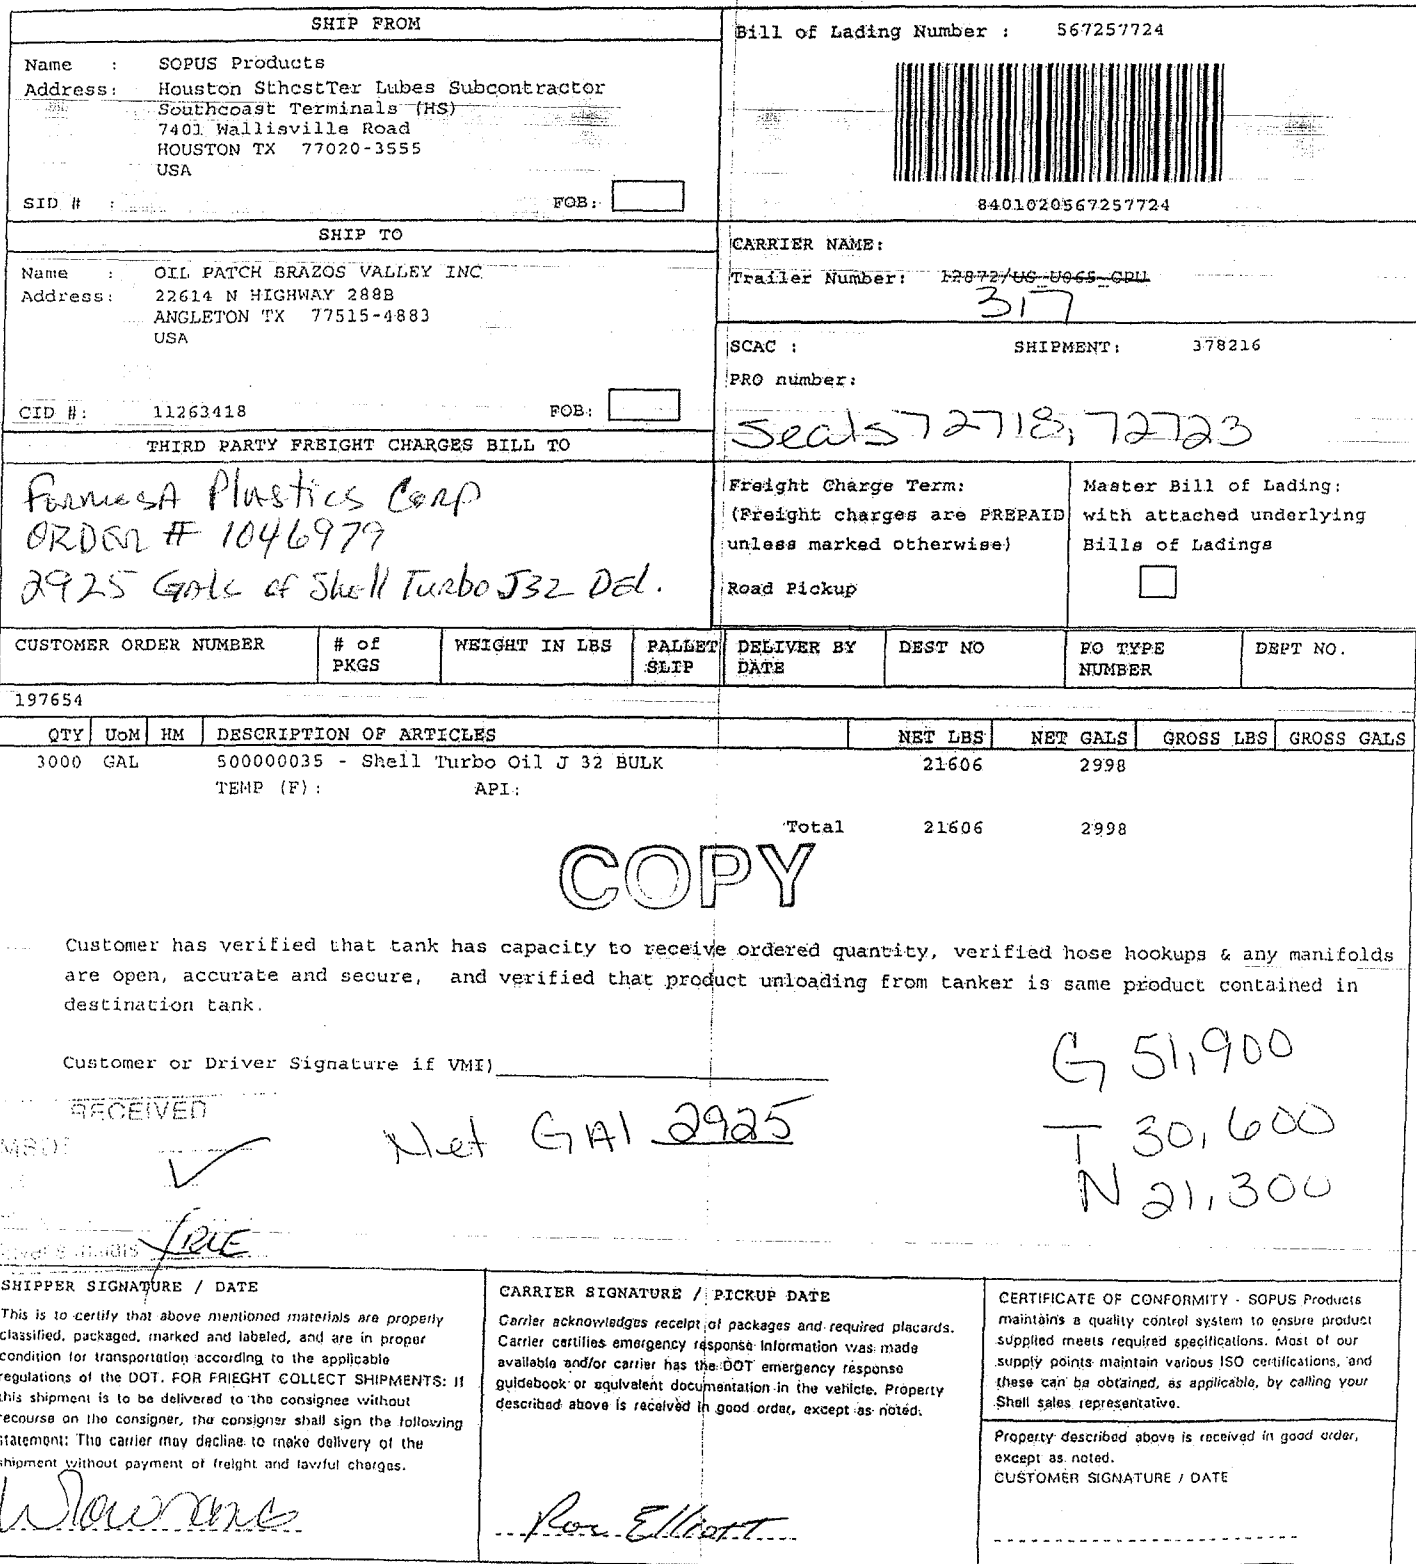 SHIP FROM
Name : SOPUS Products
Address: Houston SthcstTer Lubes Subcontractor
Southcoast Terminals (HS)
7401 Wallisville Road
HOUSTON TX 77020-3555
USA
SID # : FOB:
Bill of Lading Number : 567257724
8401020567257724
SHIP TO
Name : OIL PATCH BRAZOS VALLEY INC
Address: 22614 N HIGHWAY 288B
ANGLETON TX 77515-4883
USA
CID #: 11263418 FOB:
CARRIER NAME:
Trailer Number: 12872/US_U065_CPU
317
SCAC : SHIPMENT: 378216
PRO number:
Seals 72718, 72723
THIRD PARTY FREIGHT CHARGES BILL TO
FormosA Plastics Corp
ORDER # 1046979
2925 Gals of Shell Turbo J32 Del.
Freight Charge Term:
(Freight charges are PREPAID
unless marked otherwise)
Road Pickup
Master Bill of Lading:
with attached underlying
Bills of Ladings
CUSTOMER ORDER NUMBER # of PKGS WEIGHT IN LBS PALLET SLIP DELIVER BY DATE DEST NO PO TYPE NUMBER DEPT NO.
197654
QTY UoM HM DESCRIPTION OF ARTICLES NET LBS NET GALS GROSS LBS GROSS GALS
3000 GAL 500000035 - Shell Turbo Oil J 32 BULK 21606 2998
TEMP (F): API:
Total 21606 2998
COPY
Customer has verified that tank has capacity to receive ordered quantity, verified hose hookups & any manifolds
are open, accurate and secure, and verified that product unloading from tanker is same product contained in
destination tank.
Customer or Driver Signature if VMI)
G 51,900
RECEIVED
Net GAl 2925
T 30,600
N 21,300
SHIPPER SIGNATURE / DATE
This is to certify that above mentioned materials are properly
classified, packaged, marked and labeled, and are in proper
condition for transportation according to the applicable
regulations of the DOT. FOR FRIEGHT COLLECT SHIPMENTS: If
this shipment is to be delivered to the consignee without
recourse on the consigner, the consigner shall sign the following
statement: The carrier may decline to make delivery of the
shipment without payment of freight and lawful charges.
CARRIER SIGNATURE / PICKUP DATE
Carrier acknowledges receipt of packages and required placards.
Carrier certifies emergency response information was made
available and/or carrier has the DOT emergency response
guidebook or equivalent documentation in the vehicle. Property
described above is received in good order, except as noted.
Ron Elliott
CERTIFICATE OF CONFORMITY - SOPUS Products
maintains a quality control system to ensure product
supplied meets required specifications. Most of our
supply points maintain various ISO certifications, and
these can be obtained, as applicable, by calling your
Shell sales representative.
Property described above is received in good order,
except as noted.
CUSTOMER SIGNATURE / DATE